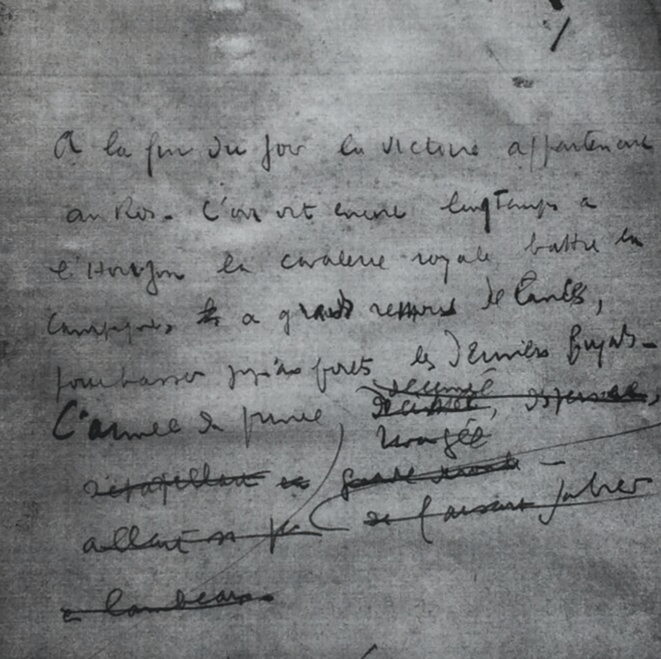 A la fin du jour la victoire appartenait
au Roi. L'on vit encore longtemps à
l'Horizon la cavalerie royale battre la
campagne, a grands remous de lances,
pourchasser jusqu'aux forêts les derniers fuyards.
décimée
L'armée du prince, dispersée,
ravagée
s'éparpillant en
allait se faisant sabrer
a lambeaux